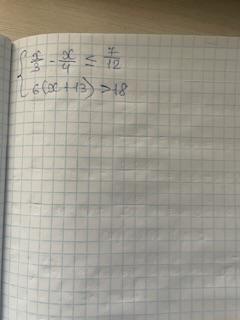 { x/3 - x/4 ≤ 7/12
6(x+13) > 18